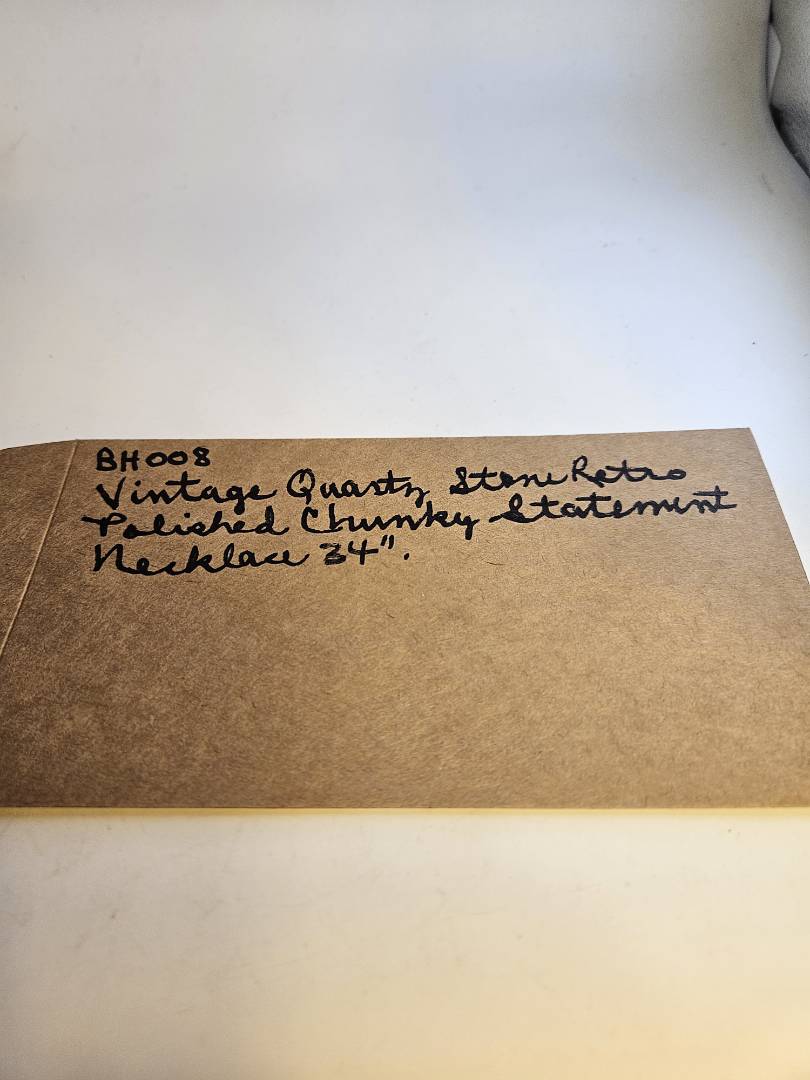 BH008
Vintage Quartz Stone Retro
Polished Chunky Statement
Necklace 34".